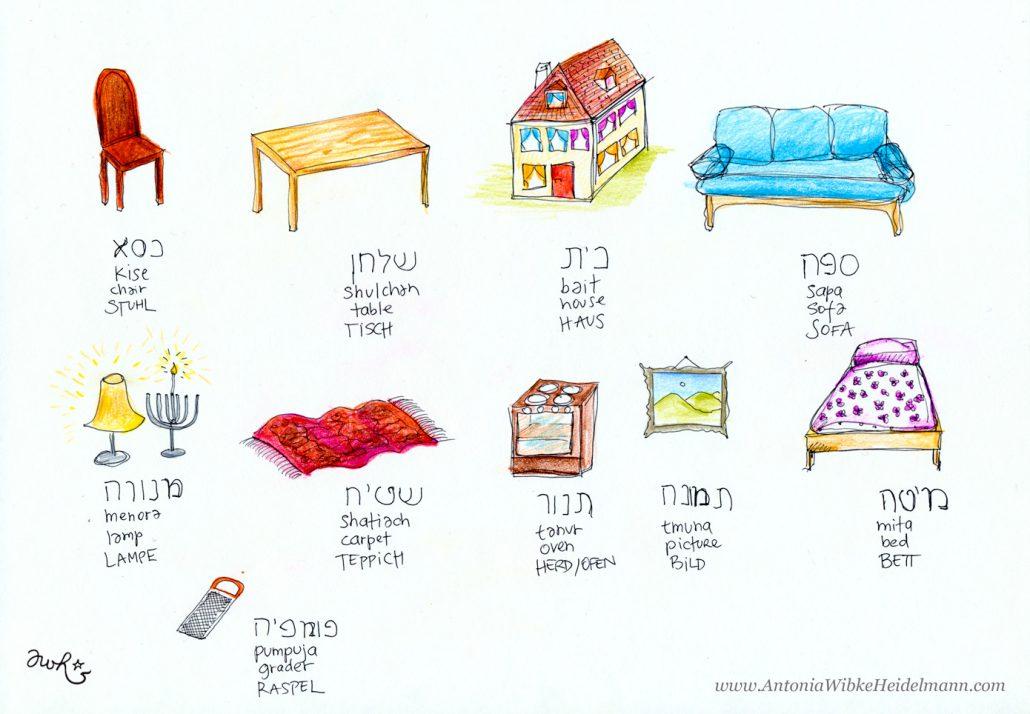 כסא
kise
chair
STUHL
שלחן
shulchan
table
TISCH
בית
bait
house
HAUS
ספה
sapa
sofa
SOFA
מנורה
menora
lamp
LAMPE
שטיח
shatiach
carpet
TEPPICH
תנור
tanur
oven
HERD/OFEN
תמונה
tmuna
picture
BILD
מיטה
mita
bed
BETT
פומפיה
pumpuja
grader
RASPEL
awh
www.AntoniaWibkeHeidelmann.com